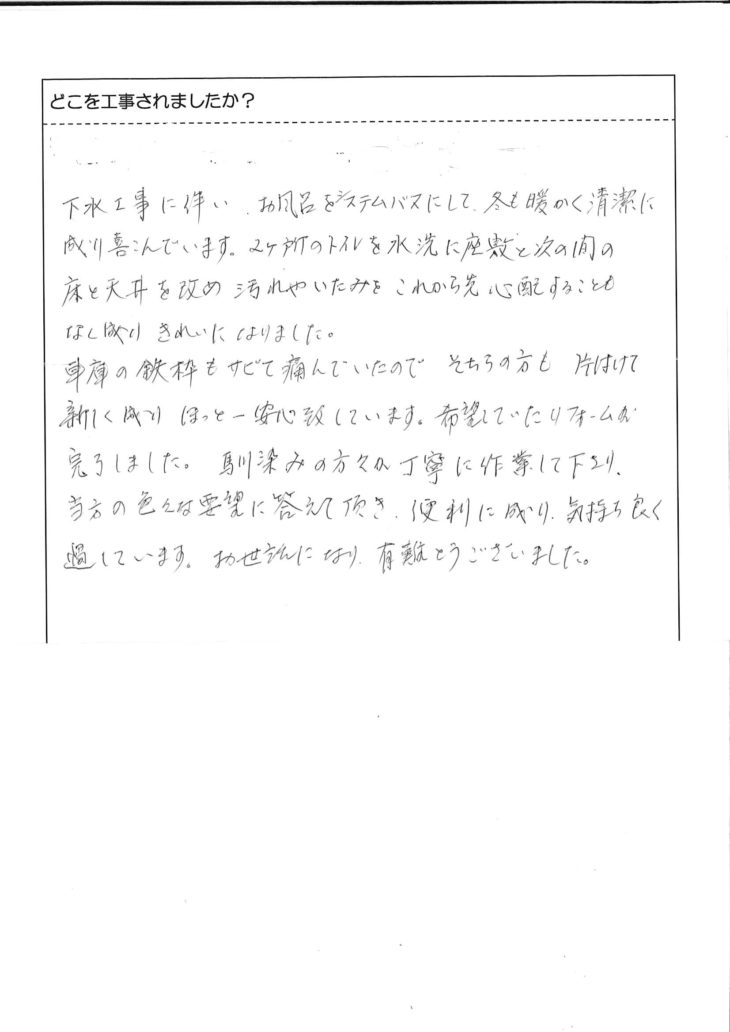 どこを工事されましたか？
下水工事に伴い、お風呂をシステムバスにして、冬も暖かく清潔に
成り喜こんでいます。2ヶ所のトイレを水洗に座敷と次の間の
床と天井を改め 汚れやいたみを これから先 心配することも
なく成り きれいになりました。
車庫の鉄枠もサビて痛んでいたので そちらの方も 片ずけて
新しく成り ほっと一安心致しています。希望していたリフォームが
完了しました。 馴染みの方々が丁寧に作業して下さり、
当方の色々な要望に答えて頂き、便利に成り、気持ち良く
過しています。お世話になり、有難とうございました。